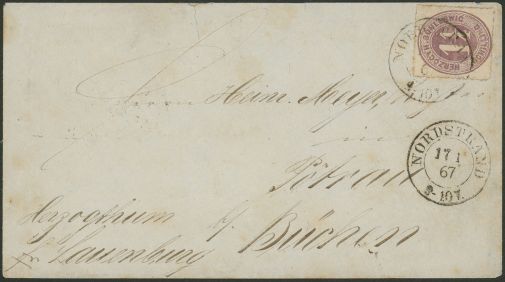 HERZOGTH. SCHLESWIG
1⅓
NORDSTRAND
17 1
67
9-10V.
Herrn Heinr. Meyn,
in
Pötrau
b/
Büchen
Herzogthum
Lauenburg